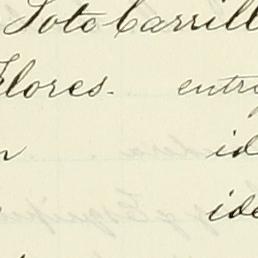 Soto Carrill
Flores. entre
n id
ide